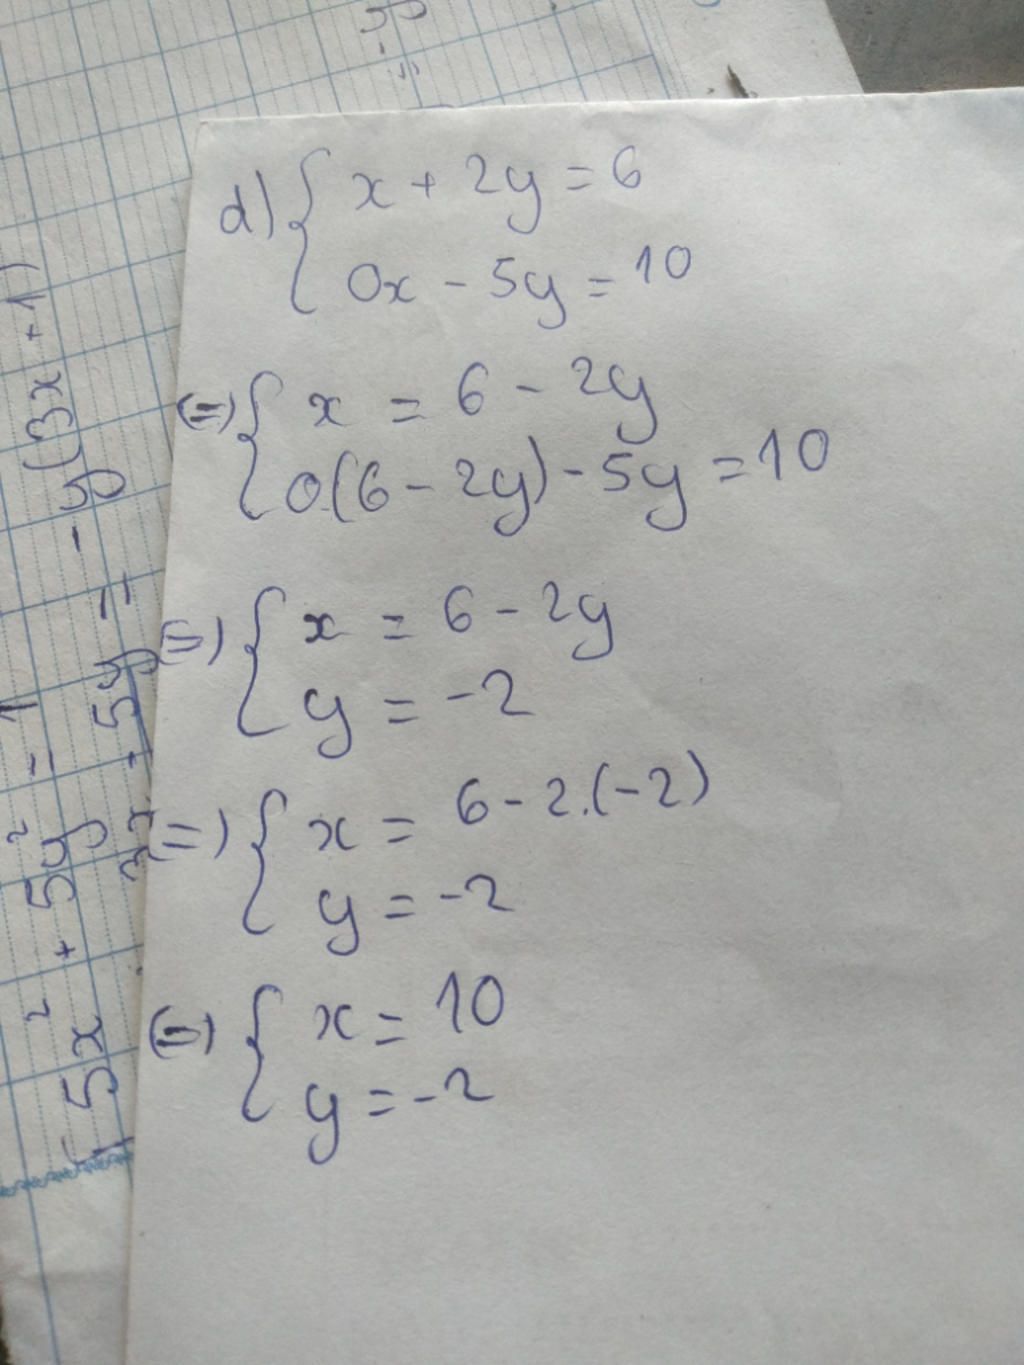 d) { x + 2y = 6
0x - 5y = 10
(=) { x = 6 - 2y
0.(6 - 2y) - 5y = 10
(=) { x = 6 - 2y
y = -2
(=) { x = 6 - 2.(-2)
y = -2
(=) { x = 10
y = -2
5x² + 5y² = 1
3x - 5y = - y(3x + 1)